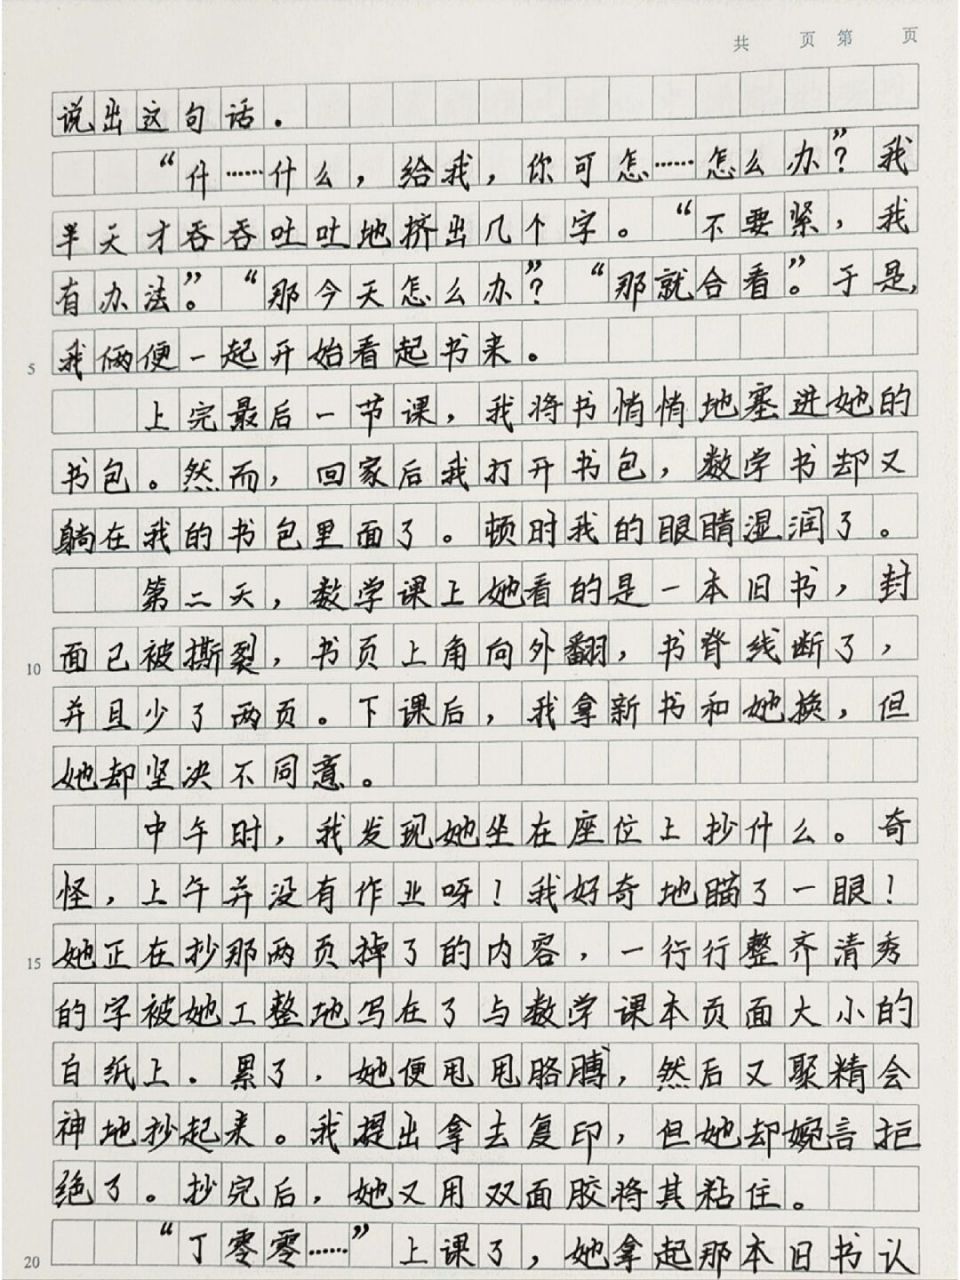 共 页 第 页
说出这句话。
“什……什么，给我，你可怎……怎么办”？我
半天才吞吞吐吐地挤出几个字。“不要紧，我
有办法”。“那今天怎么办”？“那就合看”。于是，
5 我俩便一起开始看起书来。
上完最后一节课，我将书悄悄地塞进她的
书包。然而，回家后我打开书包，数学书却又
躺在我的书包里面了。顿时我的眼睛湿润了。
第二天，数学课上她看的是一本旧书，封
10 面已被撕裂，书页上角向外翻，书脊线断了，
并且少了两页。下课后，我拿新书和她换，但
她却坚决不同意。
中午时，我发现她坐在座位上抄什么。奇
怪，上午并没有作业呀！我好奇地瞄了一眼！
15 她正在抄那两页掉了的内容，一行行整齐清秀
的字被她工整地写在了与数学课本页面大小的
白纸上．累了．她便甩甩胳膊，然后又聚精会
神地抄起来。我提出拿去复印，但她却婉言拒
绝了。抄完后，她又用双面胶将其粘住。
20 “丁零零……”上课了，她拿起那本旧书认